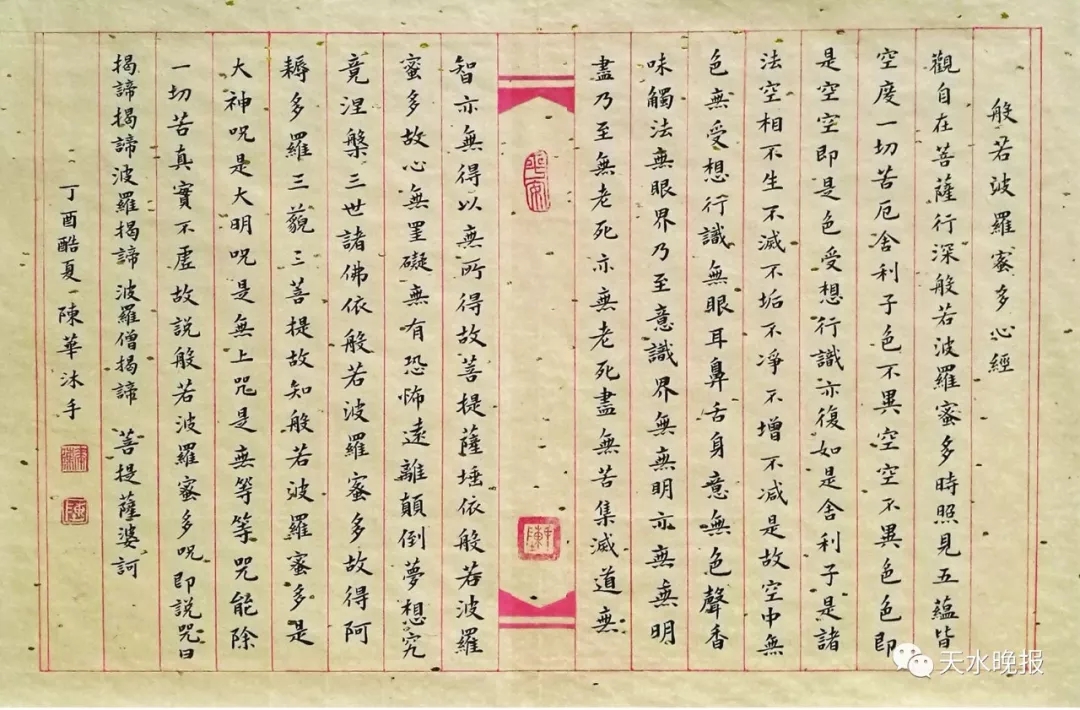 般若波羅蜜多心經
觀自在菩薩行深般若波羅蜜多時照見五蘊皆
空度一切苦厄舍利子色不異空空不異色色即
是空空即是色受想行識亦復如是舍利子是諸
法空相不生不滅不垢不凈不增不减是故空中無
色無受想行識無眼耳鼻舌身意無色聲香
味觸法無眼界乃至意識界無無明亦無無明
盡乃至無老死亦無老死盡無苦集滅道無
智亦無得以無所得故菩提薩埵依般若波羅
蜜多故心無罣礙無有恐怖遠離顛倒夢想究
竟涅槃三世諸佛依般若波羅蜜多故得阿
耨多羅三藐三菩提故知般若波羅蜜多是
大神咒是大明咒是無上咒是無等等咒能除
一切苦真實不虛故說般若波羅蜜多咒即說咒曰
揭諦揭諦波羅揭諦 波羅僧揭諦 菩提薩婆訶
丁酉酷夏 陳華沐手
天水晚报